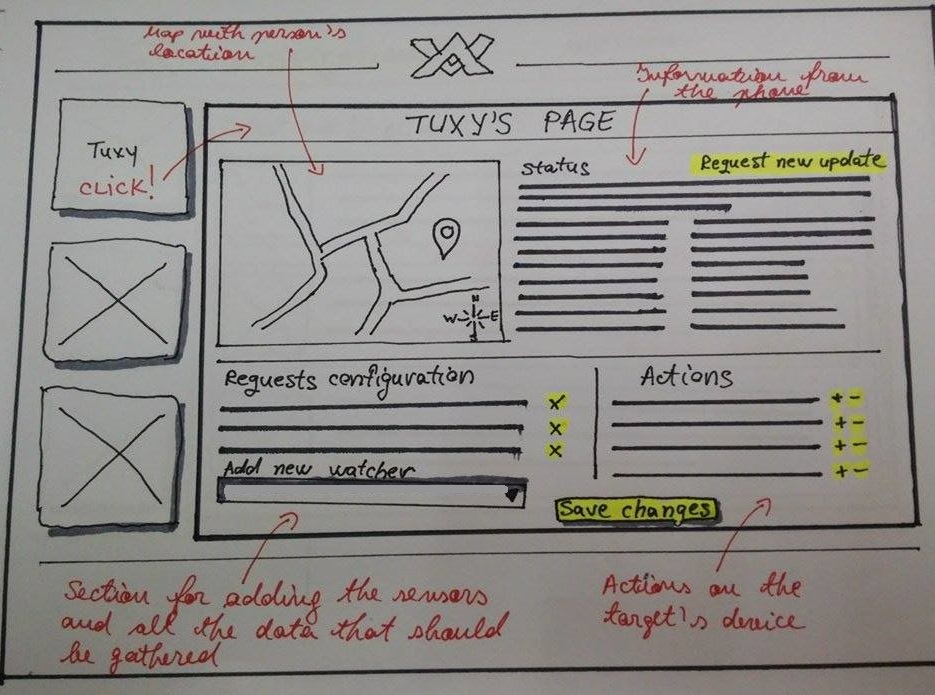 Map with person's
location
Information from
the phone
TUXY'S PAGE
Tuxy
CLICK!
Status
Request new update
N
W
E
S
Requests configuration
x
x
x
Add new watcher
Actions
+ -
+ -
+ -
+ -
Save changes
Section for adding the sensors
and all the data that should
be gathered
Actions on the
target's device